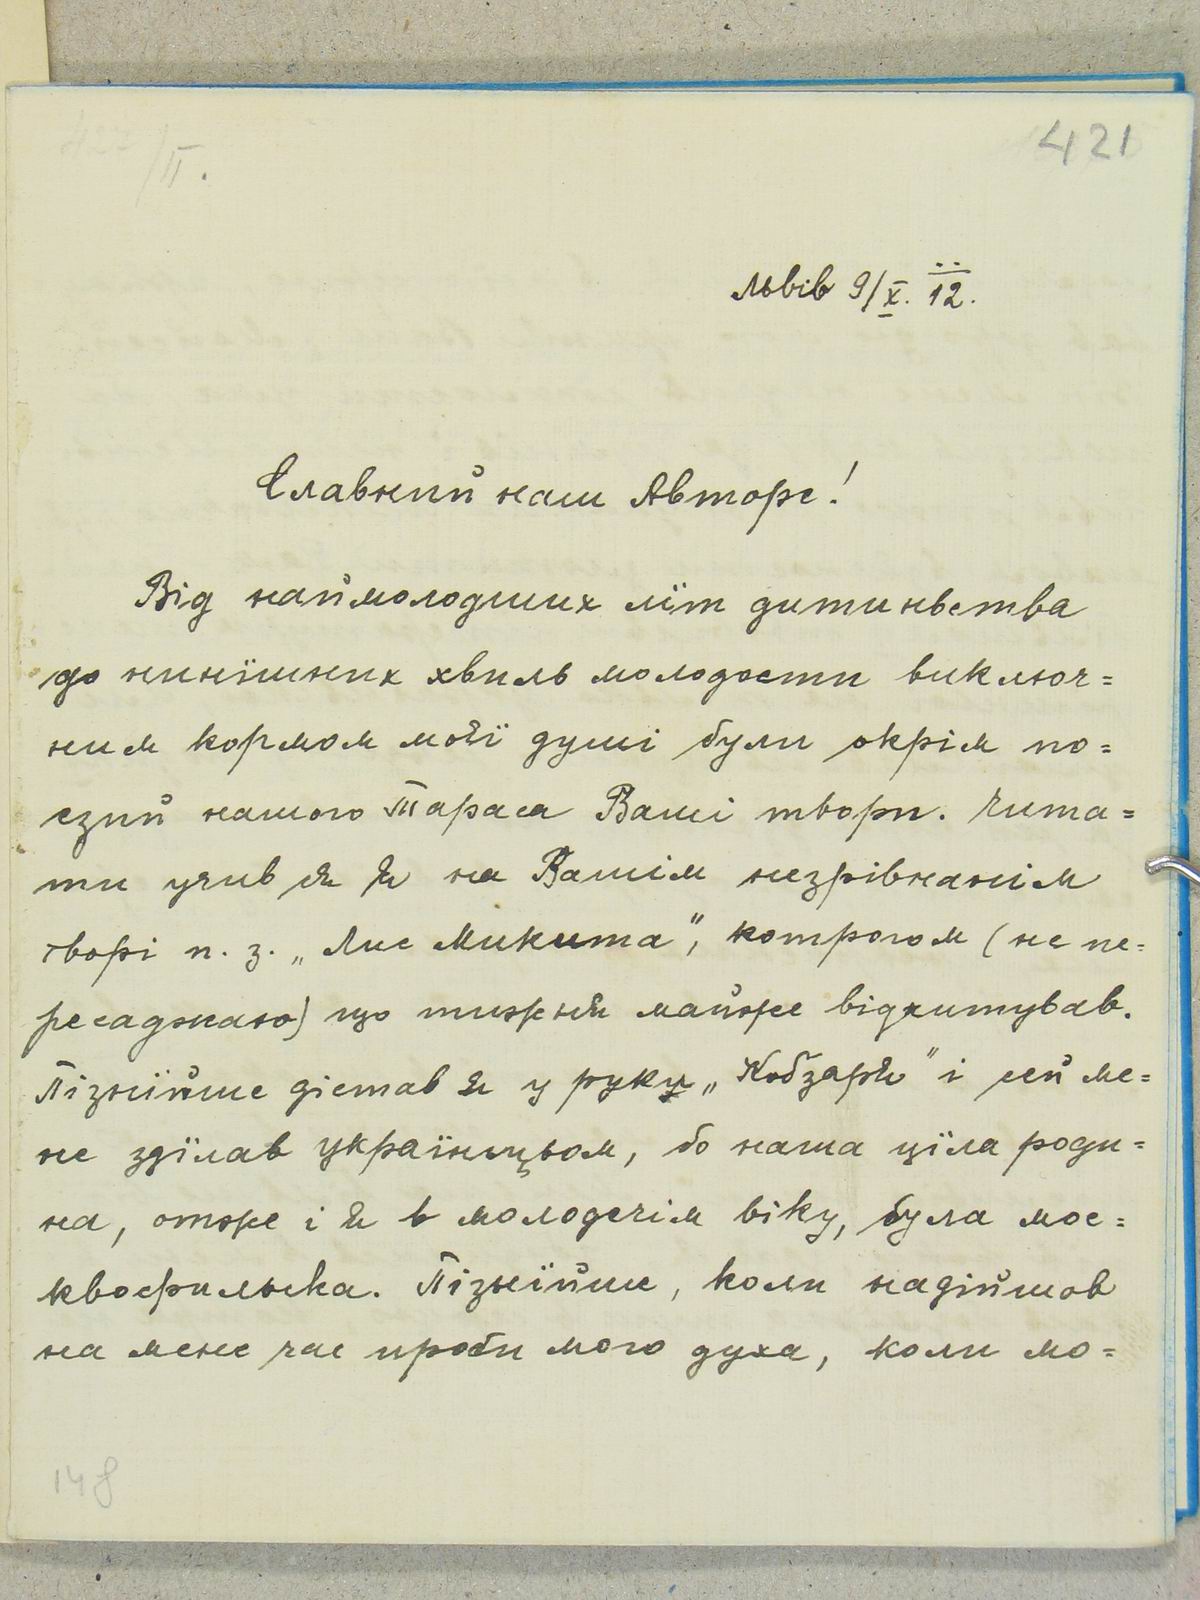 421
/II.
Львів 9/X. 12.
Славний наш Авторе!
Від наймолодших лїт дитиньства
до нинїшних хвиль молодости виключ=
ним кормом моєї душі були окрім по=
езий нашого Тараса Ваші твори. Чита=
ти учив ся я на Вашім незрівнанім
творі п. з. „Лис Микита", котрогом (не пе=
ресаджаю) що тижня майже відчитував.
Пізнїйше дістав я у руку „Кобзаря" і сей ме=
не здїлав українцьом, бо наша цїла роди=
на, отже і я в молодечім віку, була мос=
квофильска. Пізнїйше, коли надійшов
на мене час проби мого духа, коли мо=
148